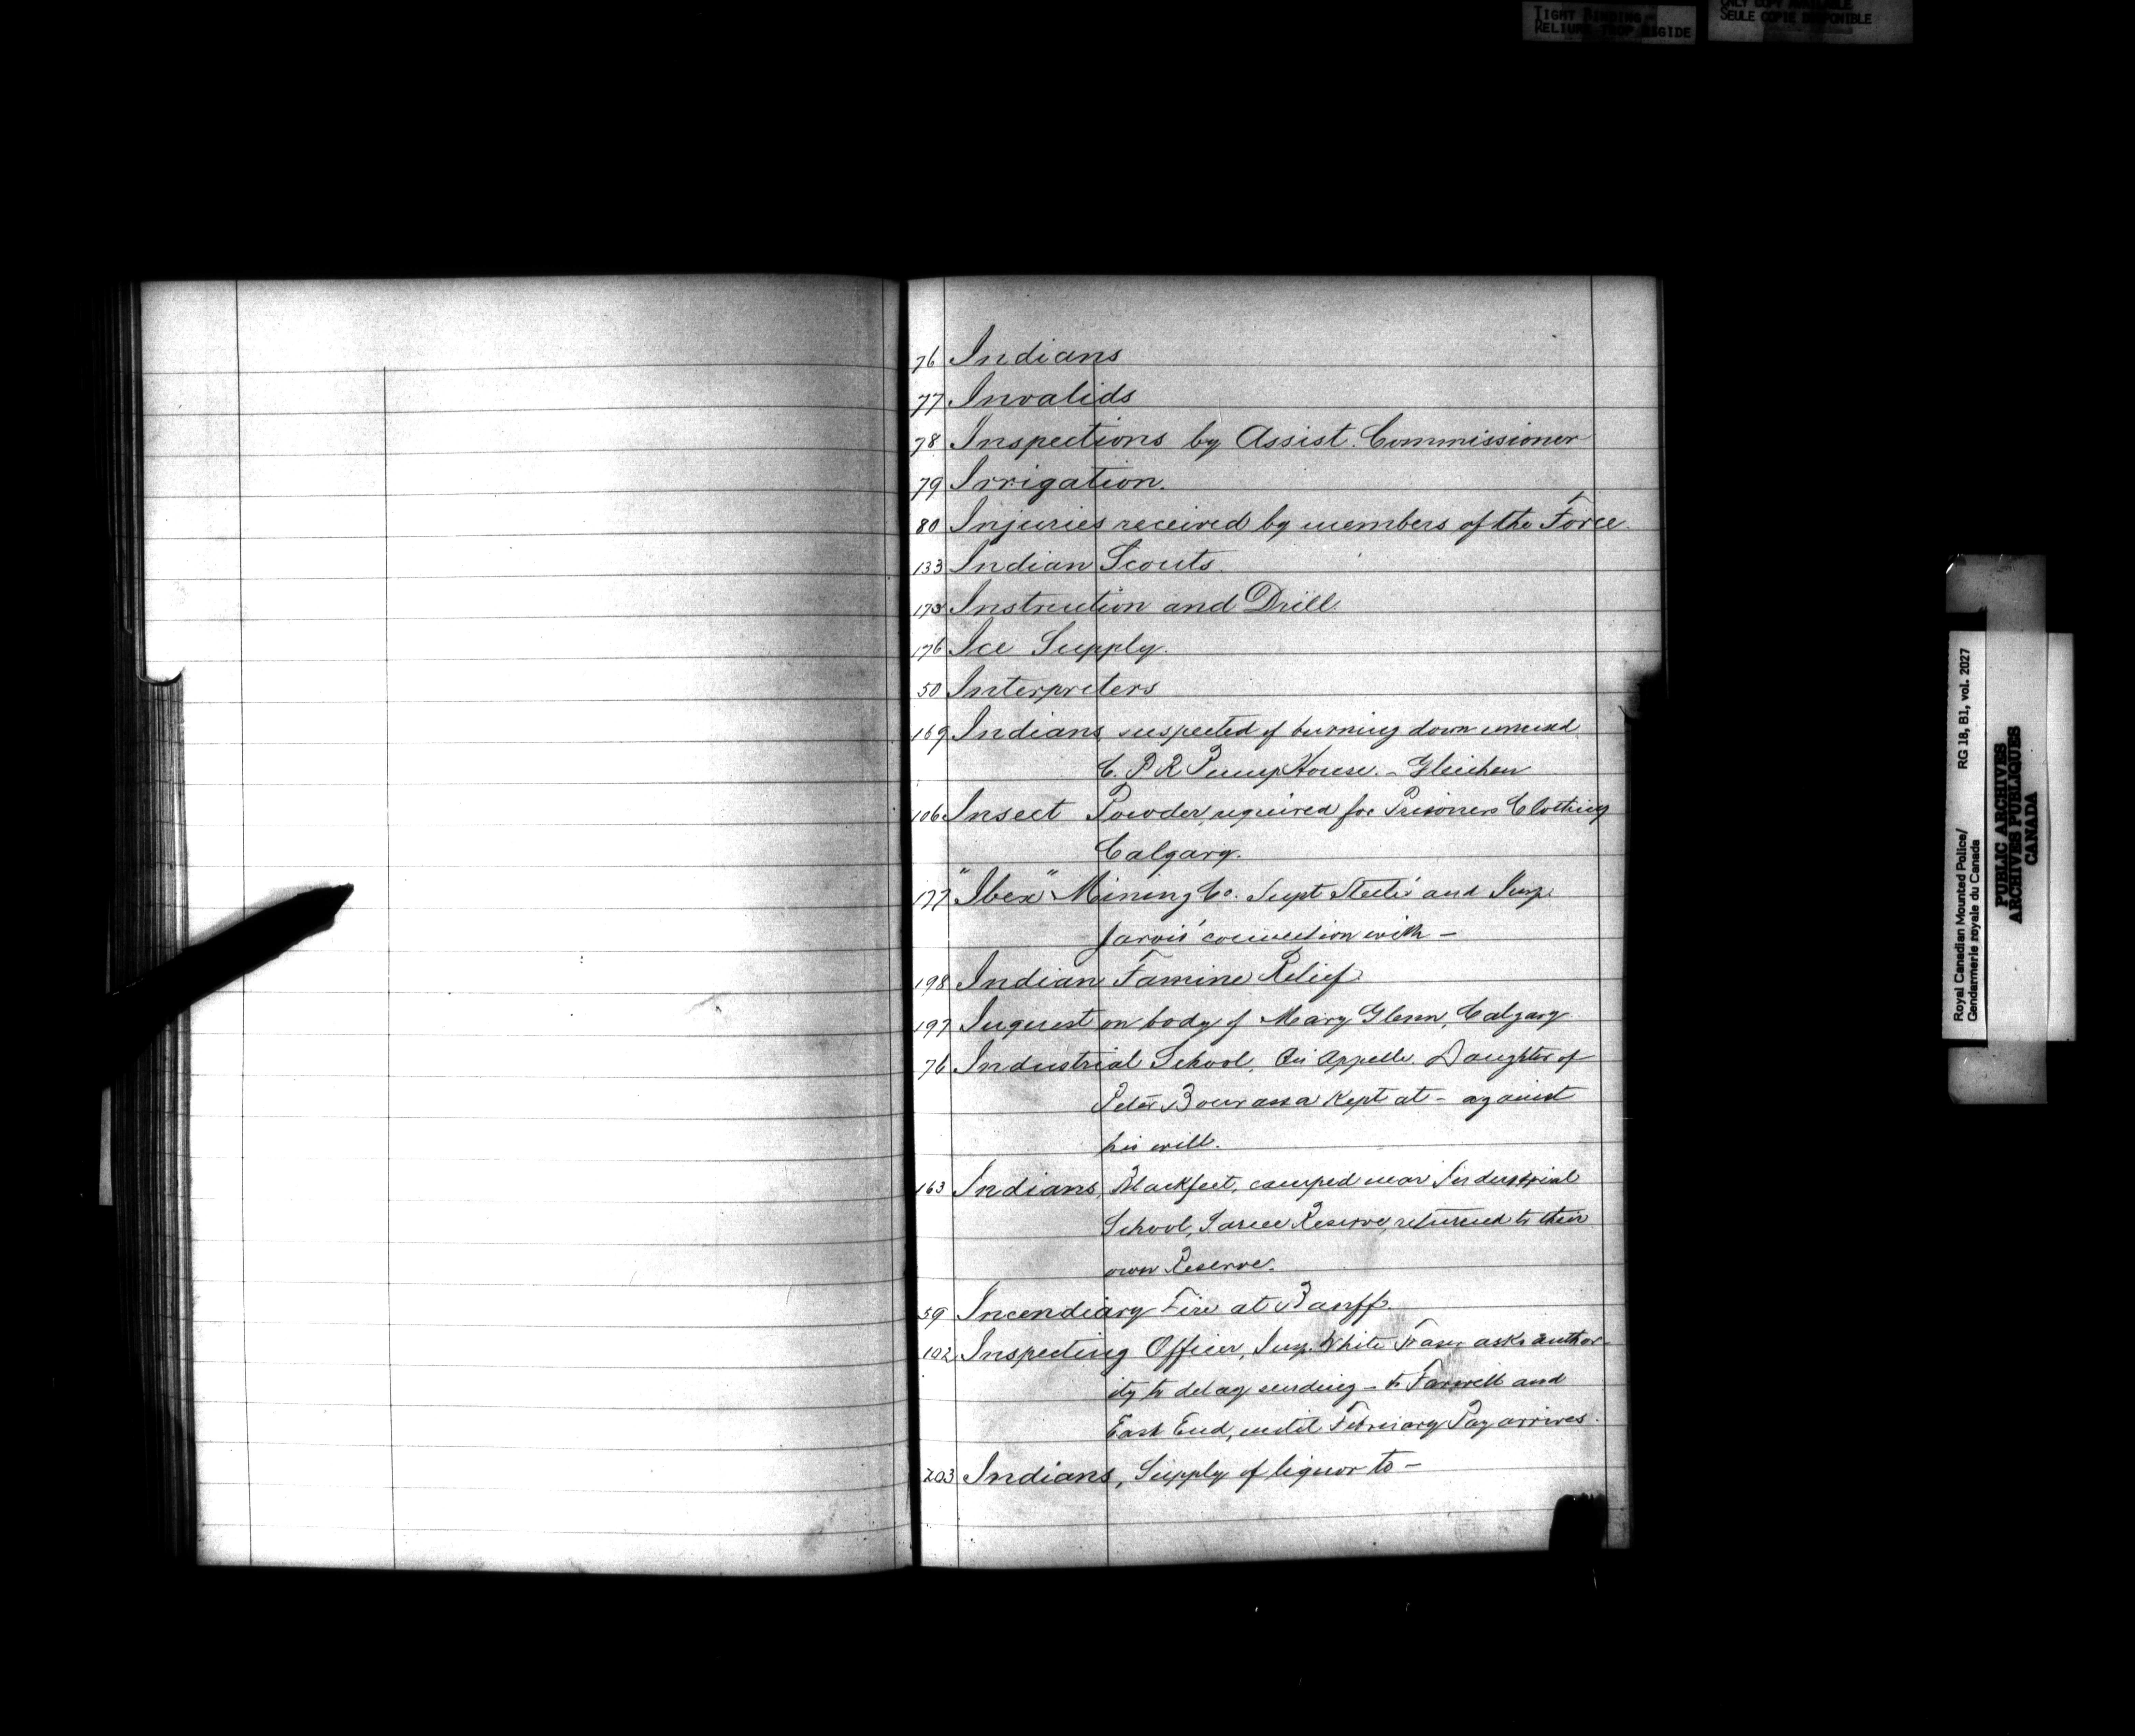 TIGHT BINDING
RELIURE TROP RIGIDE
ONLY COPY AVAILABLE
SEULE COPIE DISPONIBLE
76 Indians
77 Invalids
78 Inspections by Assist. Commissioner
79 Irrigation.
80 Injuries received by members of the Force.
133 Indian Scouts.
175 Instruction and Drill.
176 Ice Supply.
50 Interpreters
169 Indians, suspected of burning down unused
C. P R Pump House. - Gleichen
106 Insect Powder, required for Prisoners Clothing
Calgary.
177 "Ibex" Mining Co. Supt Steele's and Insp.
Jarvis' connection with -
198 Indian Famine Relief.
197 Inquest on body of Mary Glenn, Calgary.
76 Industrial School, Qu'Appelle. Daughter of
Peter Bourassa Kept at - against
his will.
163 Indians, Blackfeet, camped near Industrial
School, Sarcee Reserve, returned to their
own Reserve.
59 Incendiary Fire at Banff.
102 Inspecting Officer, Insp. White Fraser asks author-
ity to delay sending - to Farwell and
East End, until February Pay arrives.
203 Indians, Supply of liquor to -
Royal Canadian Mounted Police/ RG 18, B1, vol. 2027
Gendarmerie royale du Canada
PUBLIC ARCHIVES
ARCHIVES PUBLIQUES
CANADA